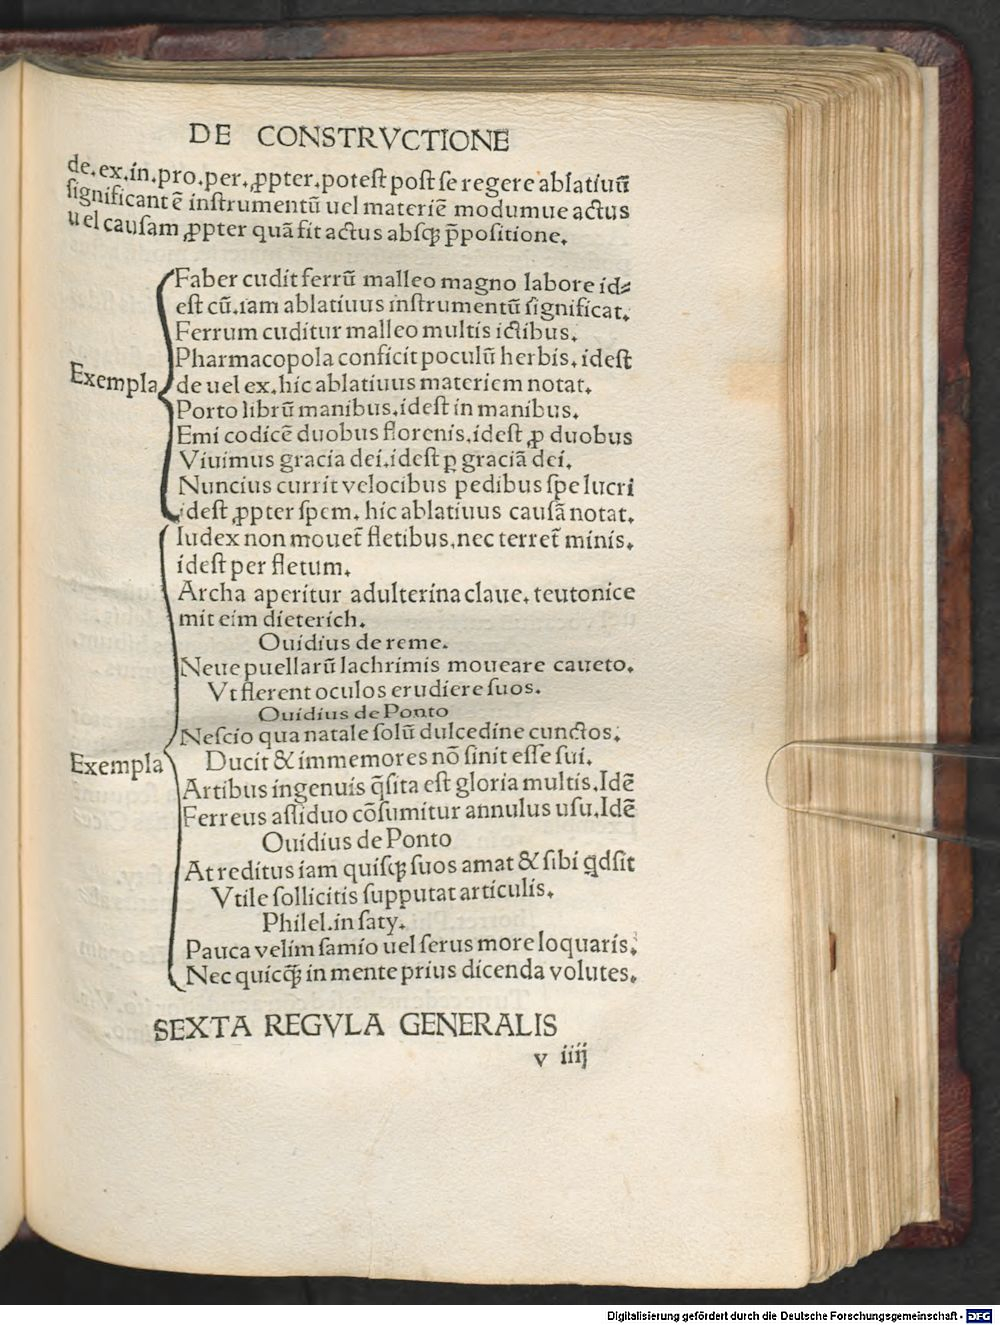 DE CONSTRVCTIONE
de.ex.in.pro.per.ꝓpter.poteſt poſt ſe regere ablatiuū
ſignificantē inſtrumentū uel materiē modumue actus
uel cauſam ꝓpter quā fit actus abſqꝫ p̄poſitione.
Faber cudit ferrū malleo magno labore id⸗
eſt cū.iam ablatiuus inſtrumentū ſignificat.
Ferrum cuditur malleo multis ictibus.
Pharmacopola conficit poculū herbis.ideſt
Exempla de uel ex.hic ablatiuus materiem notat.
Porto librū manibus.ideſt in manibus.
Emi codicē duobus florenis.ideſt ꝓ duobus
Viuimus gracia dei.ideſt ꝑ graciā dei.
Nuncius currit velocibus pedibus ſpe lucri
ideſt ꝓpter ſpem. hic ablatiuus cauſā notat.
Iudex non mouet̄ fletibus.nec terret̄ minis.
ideſt per fletum.
Archa aperitur adulterina claue. teutonice
mit eim dieterich.
Ouidius de reme.
Neue puellarū lachrimis moueare caueto.
Vt flerent oculos erudiere ſuos.
Ouidius de Ponto
Neſcio qua natale ſolū dulcedine cunctos.
Exempla Ducit & immemores nō ſinit eſſe ſui.
Artibus ingenuis q̄ſita eſt gloria multis.Idē
Ferreus aſſiduo cōſumitur annulus uſu.Idē
Ouidius de Ponto
At reditus iam quiſqꝫ ſuos amat & ſibi qdſit
Vtile ſollicitis ſupputat articulis.
Philel.in ſaty.
Pauca velim ſamio uel ſerus more loquaris.
Nec quicqꝫ̄ in mente prius dicenda volutes.
SEXTA REGVLA GENERALIS
v iiij
Digitalisierung gefördert durch die Deutsche Forschungsgemeinschaft - DFG